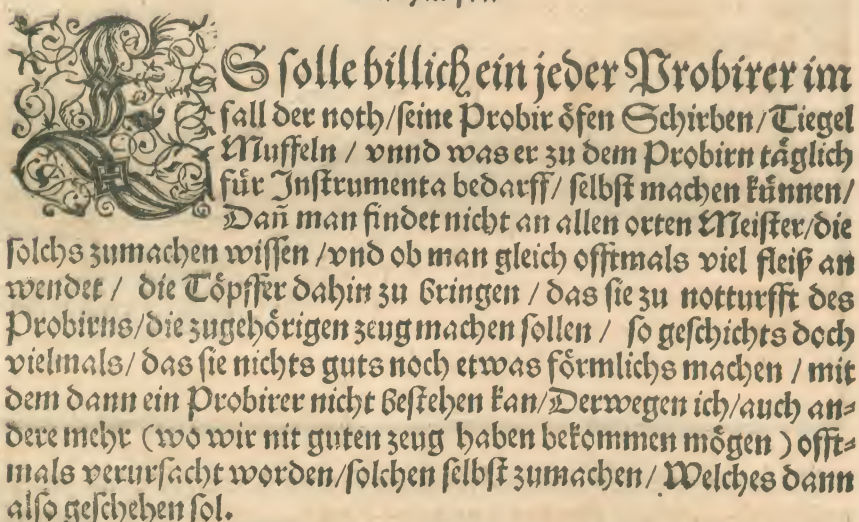 ES solle billich ein jeder Probirer im
fall der noth/seine Probir öfen Schirben/Tiegel
Muffeln / vnnd was er zu dem Probirn täglich
für Instrumenta bedarff/ selbst machen künnen/
Dañ man findet nicht an allen orten Meister/die
solchs zumachen wissen /vnd ob man gleich offtmals viel fleiß an
wendet / die Töpffer dahin zu bringen / das sie zu notturfft des
Probirns/die zugehörigen zeug machen sollen / so geschichts doch
vielmals/ das sie nichts guts noch etwas förmlichs machen / mit
dem dann ein Probirer nicht bestehen kan/Derwegen ich/auch an⸗
dere mehr (wo wir nit guten zeug haben bekommen mögen ) offt⸗
mals verursacht worden/solchen selbst zumachen/ Welches dann
also geschehen sol.